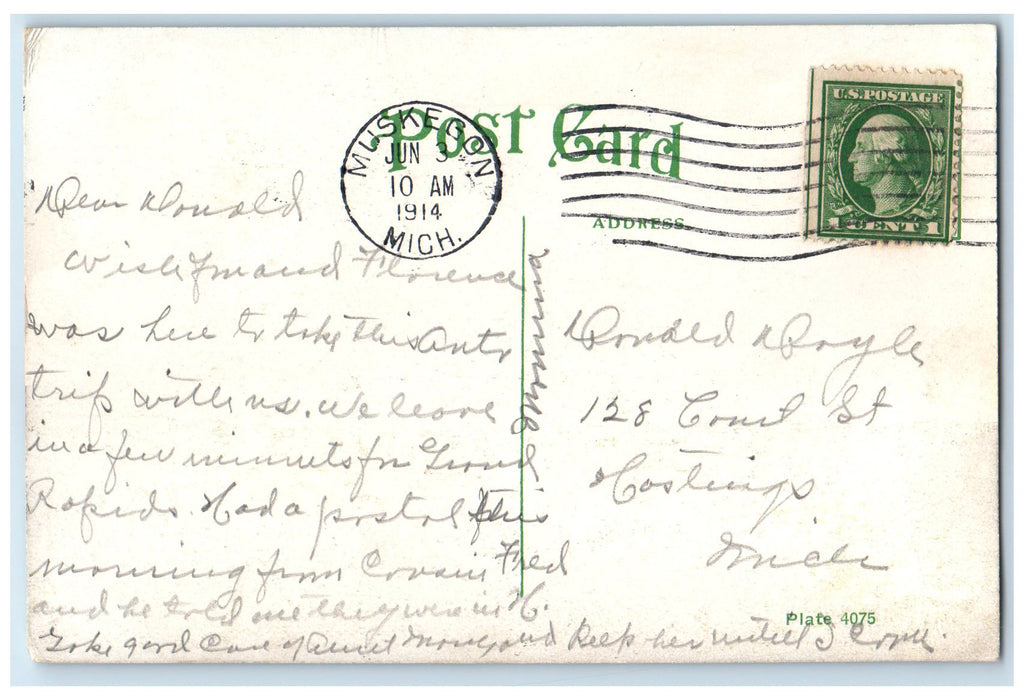 Post Card
MUSKEGON
JUN 3
10 AM
1914
MICH.
U.S. POSTAGE
1 CENTS 1
ADDRESS
Dear Donald
Wish you and Florence
was here to take this Auto
trip with us. We leave
in a few minuts for Grand
Rapids. Had a postal this
morning from Cousin Fred
and he told me they were in H.
Take good Care of Aunt and Keep her until I Come.
Momma
Donald Doyle
128 Court St
Hastings
Mich
Plate 4075